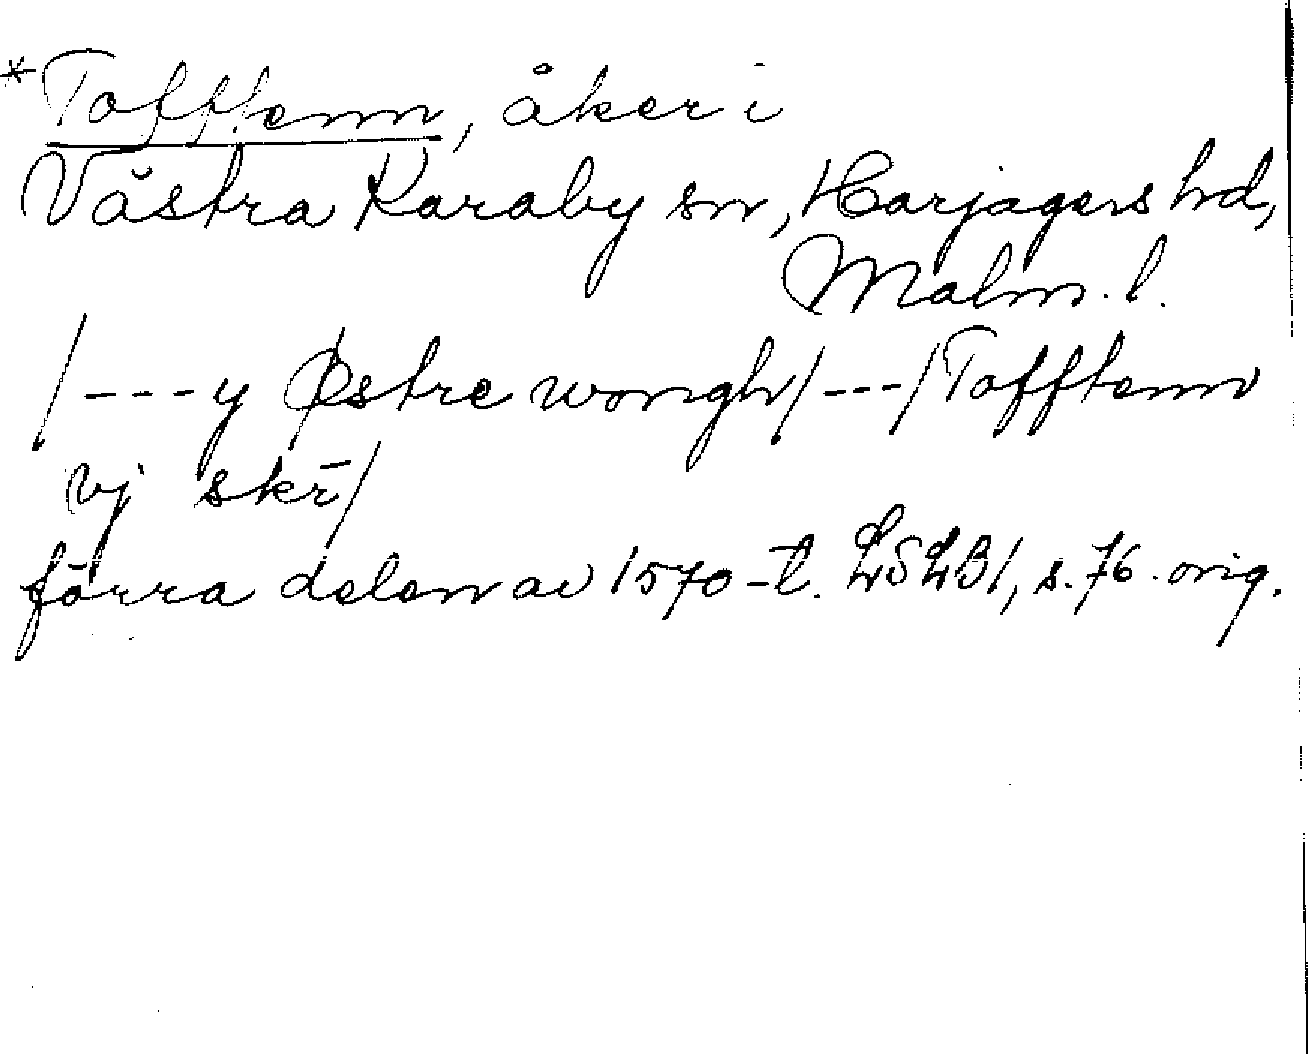 *Tofftenn, åker i
Västra Karaby sn, Harjagers hd,
Malm. l.
/---y Østre wongh/---/Tofftenn
vj skr̄/
förra delen av 1570-t. LSLB1, s. 76. orig.